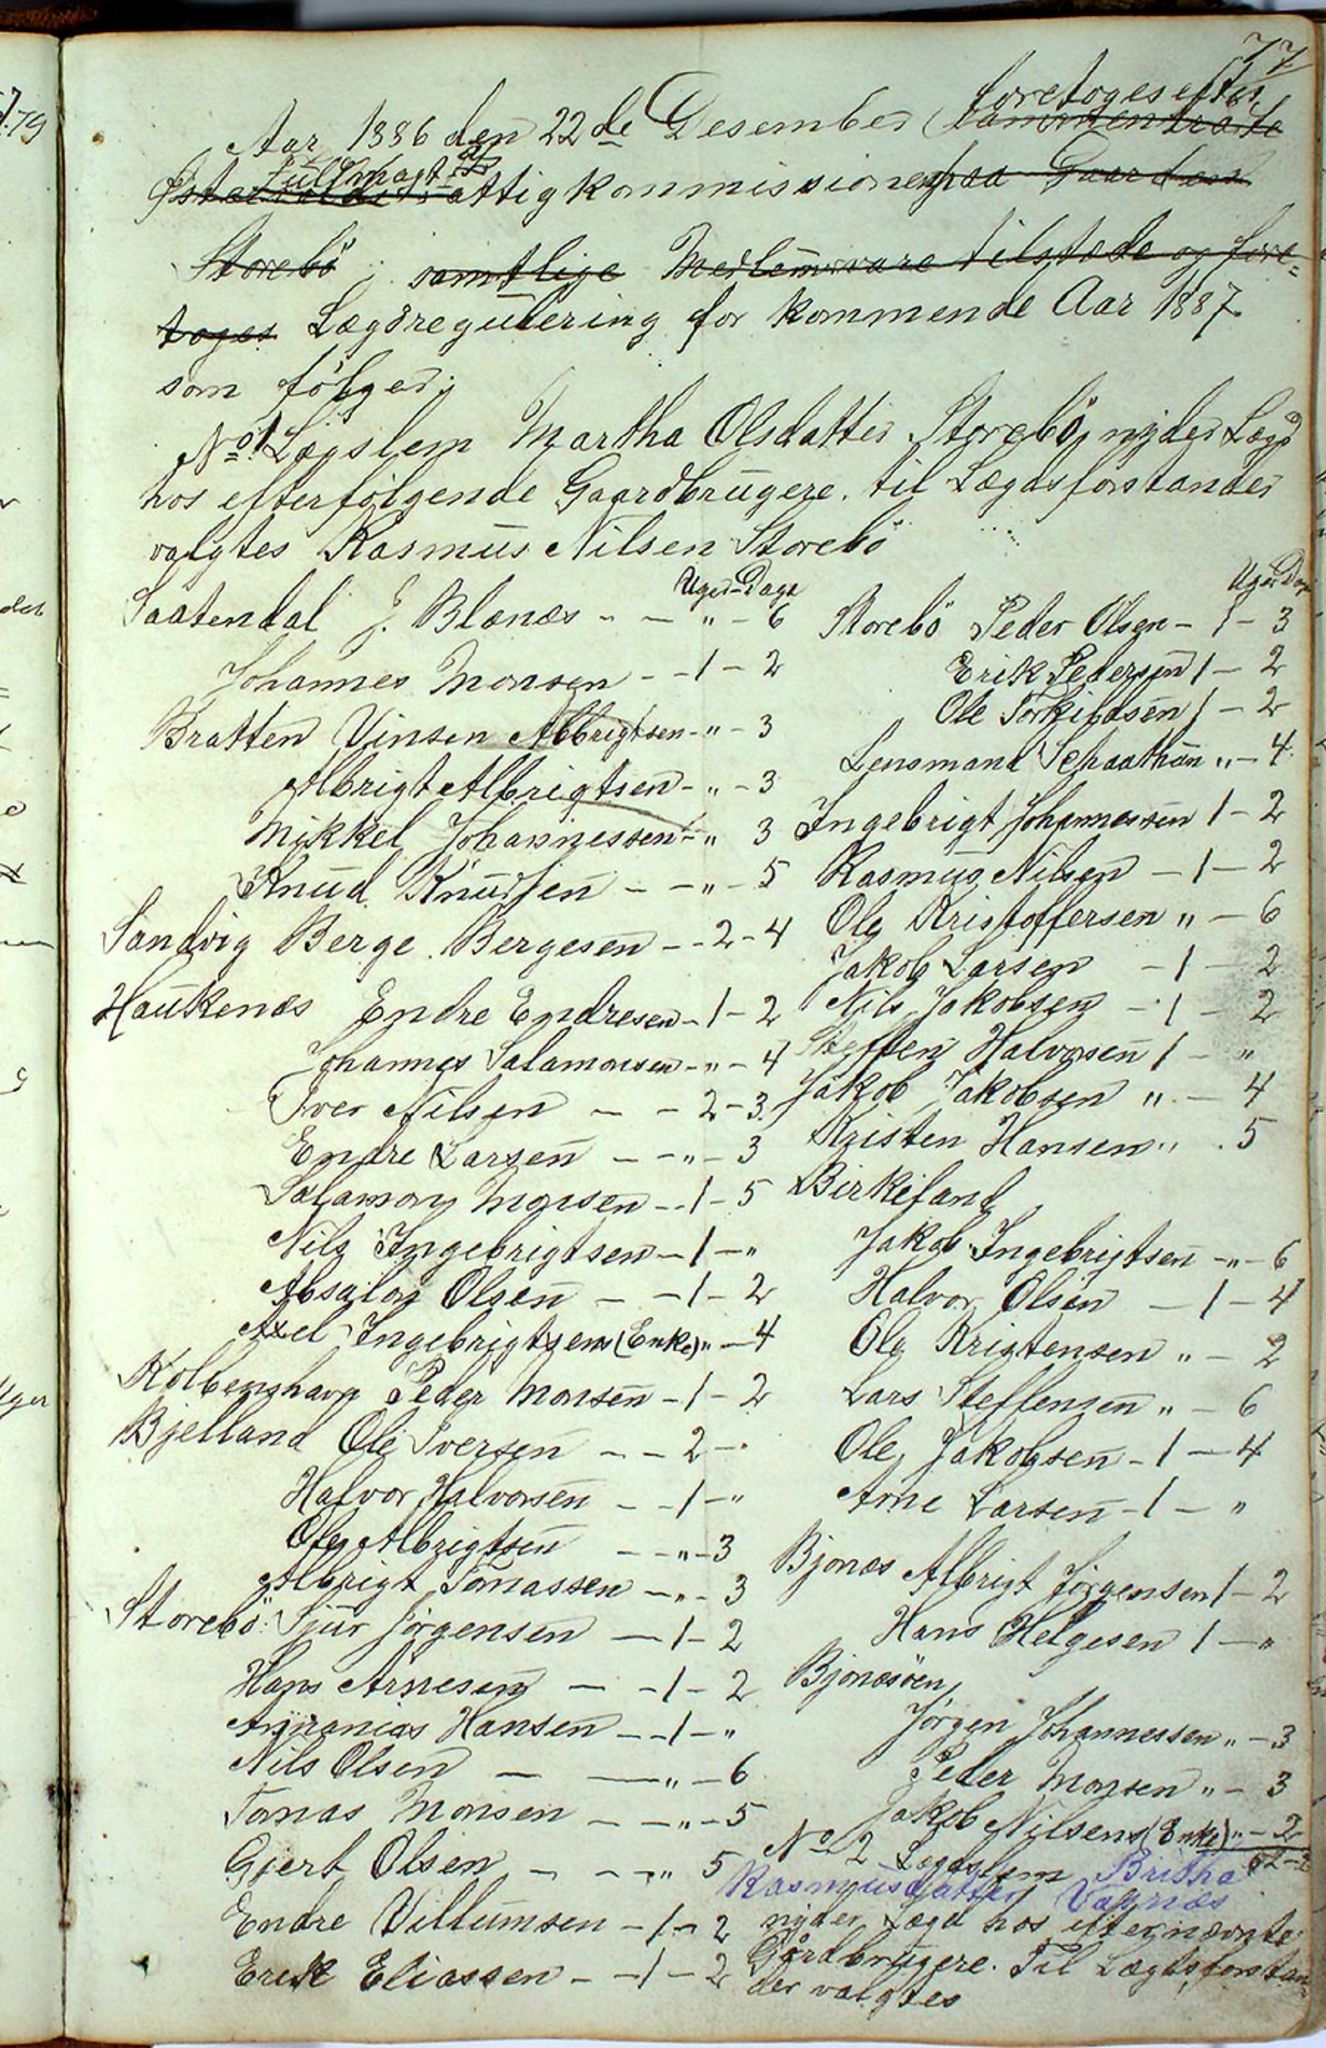 77
Aar 1886 den 22de Desember foretoges efter sammentraadte
Fuldmagt af Fattigkommissionen paa Gaarden
Storebö; samtlige Medlemmer vare tilstede og fore=
toges Lægdregulering for kommende Aar 1887
som følger:
No 1 Lægslem Martha Olsdatter Storebö, nyder Lægd
hos efterfølgende Gaardbrugere. til Lægdsforstander
valgtes Rasmus Nilsen Storebö
Uger Dage
Saatendal J. Blænæs - - " - 6
Johannes Monsen - - 1 - 2
Bratten Vinsen Albrigtsen - " - 3
Albrigt Albrigtsen - " - 3
Mikkel Johannessen - " 3
Knud Knudsen - - " - 5
Sandvig Berge Bergesen - - 2 - 4
Haukenæs Endre Endresen - 1 - 2
Johannes Salamonsen - " - 4
Iver Nilsen - - 2 - 3
Endre Larsen - - " - 3
Salamon Monsen - - 1 - 5
Nils Ingebrigtsen - 1 - "
Absalon Olsen - - 1 - 2
Axel Ingebrigtsens (Enke) " - 4
Kolbenshavn Peder Monsen - 1 - 2
Bjelland Ole Iversen - - 2 - "
Halvor Halvorsen - - 1 - "
Ole Albrigtsen - - " - 3
Albrigt Tomassen - " - 3
Storebö: Sjur Jörgensen - 1 - 2
Hans Arnesen - - 1 - 2
Annanias Hansen - - 1 - "
Nils Olsen - - " - 6
Tomas Monsen - - " - 5
Gjert Olsen - - - " 5
Endre Villumsen - 1 - 2
Erik Eliassen - - 1 - 2
Uger Dage
Storebö Peder Olsen - 1 - 3
Erik Pedersen 1 - 2
Ole Torkildsen 1 - 2
Lensmand Schaathun " - 4
Ingebrigt Johannessen 1 - 2
Rasmus Nilsen - 1 - 2
Ole Kristoffersen " - 6
Jakob Larsen - 1 - 2
Nils Jakobsen - 1 - 2
Steffen Halvorsen 1 - "
Jakob Jakobsen " - 4
Kristen Hansen " . 5
Birkeland
Jakob Ingebrigtsen - " - 6
Halvor Olsen - 1 - 4
Ole Kristensen " - 2
Lars Steffensen " - 6
Ole Jakobsen - 1 - 4
Arne Larsen - 1 - "
Bjonæs Albrigt Jörgensen 1 - 2
Hans Helgesen 1 - "
Bjonæsöen
Jörgen Johannessen " - 3
Peder Monsen " - 3
Jakob Nilsens (Enke) " - 2
No 2 Lægdslem Britha
Rasmusdatter Vagnæs
nyder Lægd hos efternævnte
Gårdbrugere. Til Lægdsforstan=
der valgtes